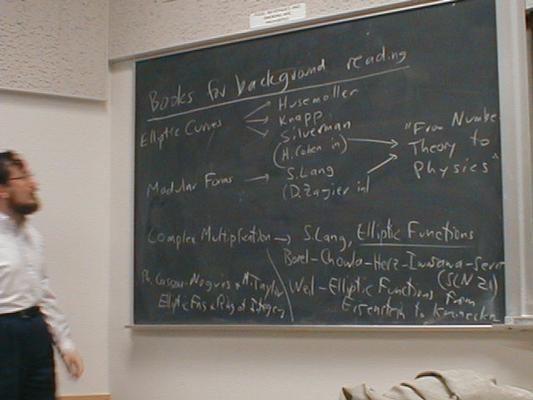 Books for background reading
Elliptic Curves
Husemoller
Knapp
Silverman
(H. Cohen in)
"From Number
Theory to
Physics"
Modular Forms → S. Lang
(D. Zagier in)
Complex Multiplication → S. Lang, Elliptic Functions
Borel-Chowla-Herz-Iwasawa-Serre
(SLN 21)
Ph. Cassou-Noguès, M. Taylor
Elliptic Fns & Rings of Integers
Weil-Elliptic Functions from
Eisenstein to Kronecker